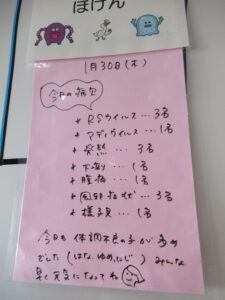 ほけん
1月30日(木)
今日の病欠
* RSウイルス… 3名
* アデノウイルス… 1名
* 発熱 … 3名
* 下痢 … 1名
* 腹痛 … 1名
* 風邪症状 … 3名
* 様子見 … 1名
今日も体調不良の子が多め
でした(はな、ゆめ、にじ) みんな
早く元気になってね